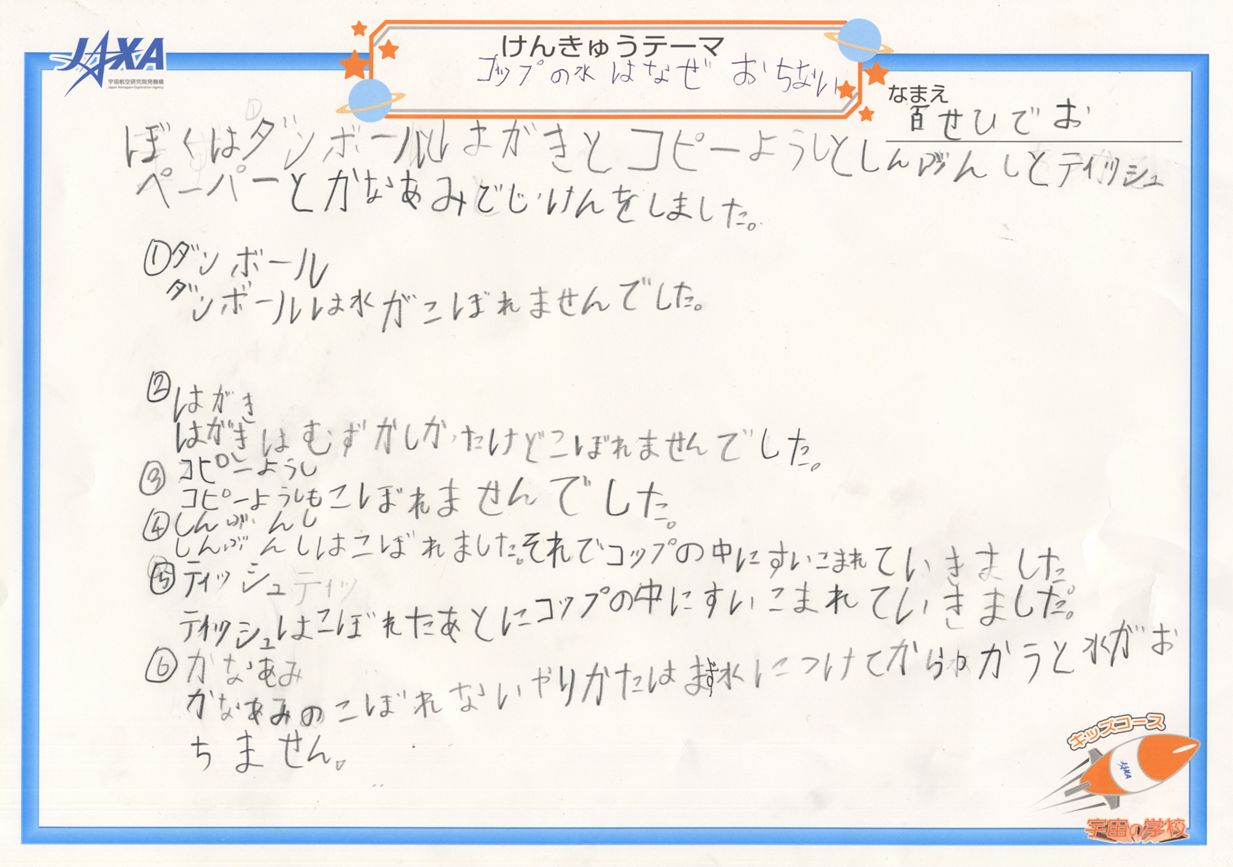 JAXA
宇宙航空研究開発機構
Japan Aerospace Exploration Agency
けんきゅうテーマ
コップの水はなぜおちない
なまえ
百せひでお
ぼくはダンボールとはがきとコピーようしとしんぶんしとティッシュ
ペーパーとかなあみでじっけんをしました。
①ダンボール
ダンボールは水がこぼれませんでした。
②はがき
はがきはむずかしかったけどこぼれませんでした。
③コピーようし
コピーようしもこぼれませんでした。
④しんぶんし
しんぶんしはこぼれました。それでコップの中にすいこまれていきました。
⑤ティッシュ
ティッシュはこぼれたあとにコップの中にすいこまれていきました。
⑥かなあみ
かなあみのこぼれないやりかたはまず水につけてから
と水がお
ちません。
キッズコース
JAXA
宇宙の学校